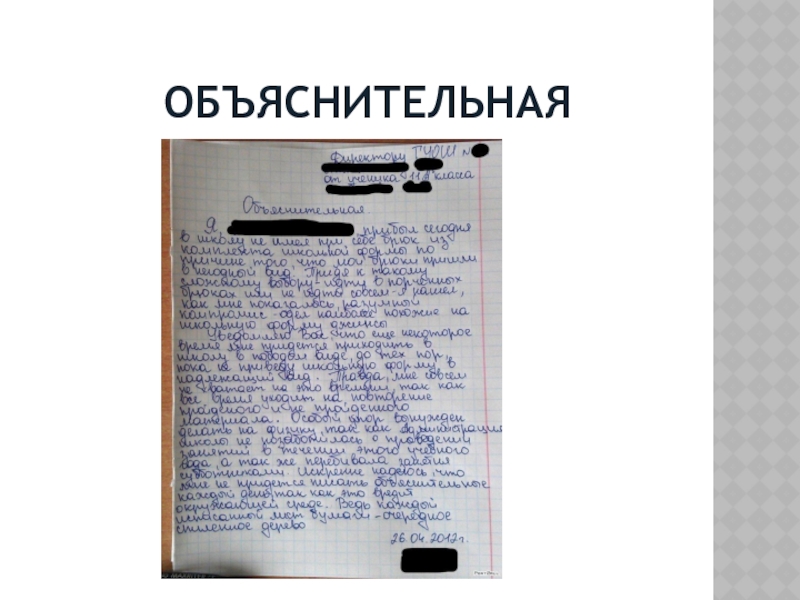 ОБЪЯСНИТЕЛЬНАЯ
Директору ГУОШ №
от ученика 11 класса
Объяснительная
Я, прибыл сегодня
в школу не имея при себе брюк из
комплекта школьной формы по
причине того, что мои брюки пришли
в негодный вид. Придя к такому
сложному выбору - идти в порченных
брюках или не идти совсем - я нашел,
как мне показалось, разумный
компромис - одел наиболее похожие на
школьную форму джинсы
Уведомляю Вас, что еще некоторое
время мне придется приходить в
школу в подобом виде до тех пор,
пока не приведу школьную форму в
надлежащий вид. Правда, мне совсем
не хватает на это времени, так как
все время уходит на повторение
пройденого и не пройденного
материала. Особый упор вынужден
делать на физику, так как администрация
школы не позаботилась о проведении
занятий в течении этого учебного
года, а так же перебивала занятия
субботниками. Искренне надеюсь, что
мне не придется писать объяснительные
каждый день, так как это вредит
окружающей среде. Ведь каждый
исписанный лист бумаги - очередное
спиленное дерево
26.04.2012г.